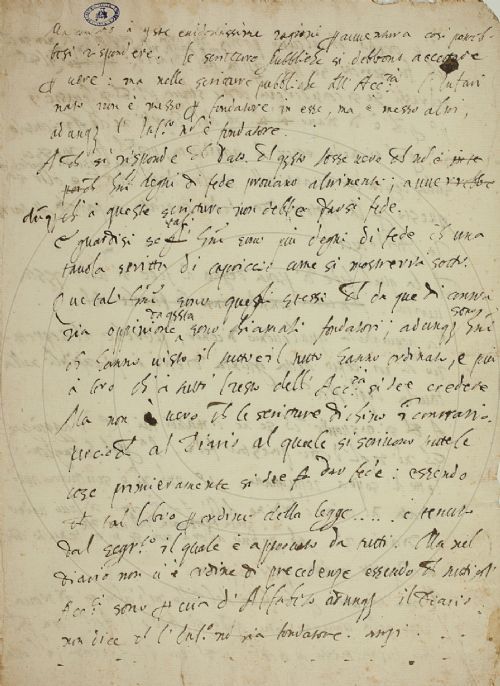 à q.ste evidentissime ragioni p avventura così potreb-
besi rispondere. le scritture pubbliche si debbono accettare
p vere: ma nelle scritture pubbliche dell'Acc.ia l'Infari
nato non è messo p fondatore in esse, ma è messo altri,
adunq; l'Inf.o nō è fondatore.
A ch si risponde ch dato ch questo fosse vero ch nō è
perch degni di fede provano altrimenti; avverrebbe
dūq; ch à queste scritture non debbe darsi fede.
E guardisi se tali sono più degni di fede ch una
tavola scritta di capriccio come si mostrerrà sotto.
Que tali sono quegli stessi ch da que di contra
ria oppinione da q.sta sono chiamati fondatori; adunq; sono
ch hanno visto il tutto e il tutto hanno ordinato, e più
à loro ch à tutti l resto dell'Acc.ia si dee credere
Ma non è vero ch le scritture dichino il contrario.
perciò ch al Diario al quale si scrivono tutte le
cose primieramente si dee dar fede: essendo
ch tal libro p ordine della legge ..... è tenuto
dal segr.o il quale è approvato da tutti. Ma nel
Diario non v'è ordine di precedenze essendo ch tutti gli
Acc.i sono p via d'Alfabeto adunq; il Diario
non dice ch l'Inf.o nō sia fondatore. anzi.